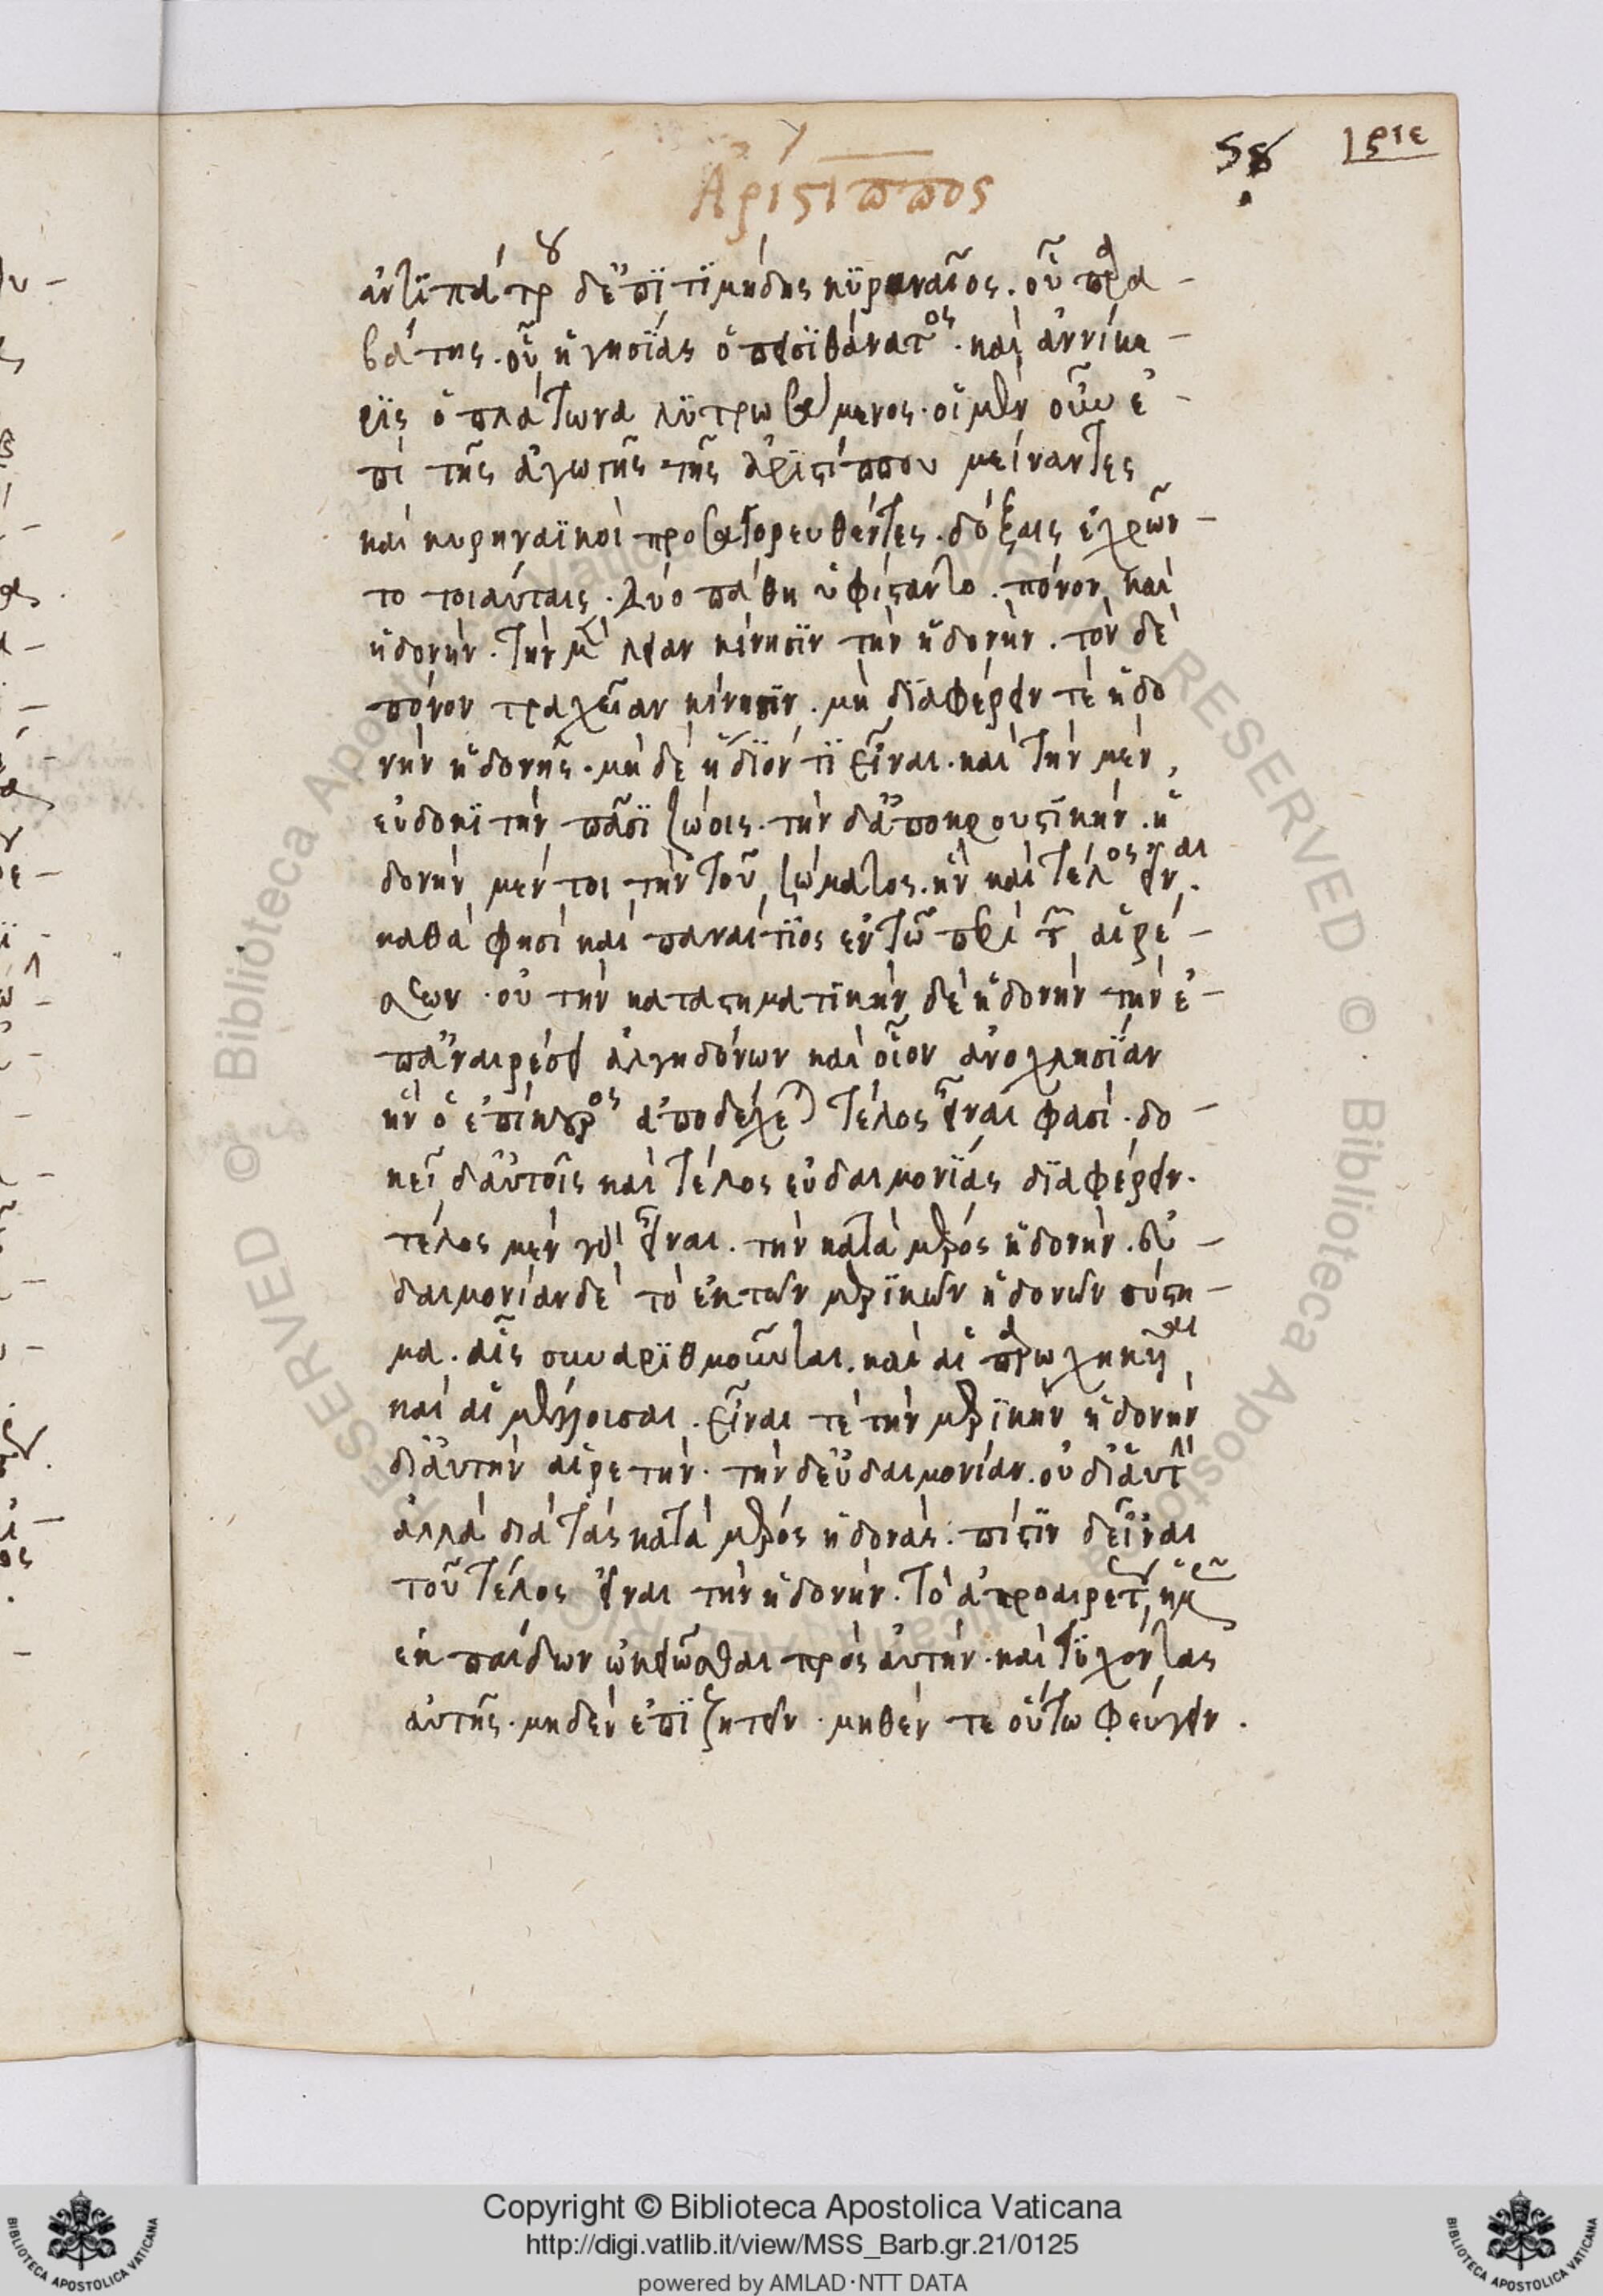 Ἀρίστιππος
58
ἀντιπάτρου δ' ἐπιτιμήδης κυρηναῖος. οὗ παρα-
βάτης. οὗ ἡγησίας ὁ πεισιθάνατος. καὶ ἀννίκε-
ρις ὁ πλάτωνα λυτρωσάμενος. οἱ μὲν οὖν ἐ-
πὶ τῆς ἀγωγῆς τῆς ἀριστίππου μείναντες
καὶ κυρηναϊκοὶ προσαγορευθέντες. δόξαις ἐχρῶν-
το τοιαύταις. δύο πάθη ὑφίσταντο. πόνον καὶ
ἡδονήν. τὴν μὲν λείαν κίνησιν τὴν ἡδονήν. τὸν δὲ
πόνον τραχεῖαν κίνησιν. μὴ διαφέρειν τὲ ἡδο
νὴν ἡδονῆς. μὴ δὲ ἥδιόν τι εἶναι. καὶ τὴν μὲν
εὐδοκιτὴν πᾶσι ζώοις. τὴν δ' ἀποκρουστικήν. ἡ
δονὴν μέν τοι τὴν τοῦ σώματος. ἣν καὶ τέλος εἶναι.
καθά φησι καὶ παναίτιος ἐν τῷ περὶ τῶν αἱρέ-
σεων. οὐ τὴν καταστηματικὴν δὲ ἡδονὴν τὴν ἐ-
π' ἀναιρέσει ἀλγηδόνων καὶ οἷον ἀνοχλησίαν
ἣν ὁ ἐπίκουρος ἀποδέχεται τέλος εἶναι φασί. δο-
κεῖ δ' αὐτοῖς καὶ τέλος εὐδαιμονίας διαφέρειν.
τέλος μὲν γὰρ εἶναι. τὴν κατὰ μέρος ἡδονήν. εὐ-
δαιμονίαν δὲ τὸ ἐκ τῶν μερικῶν ἡδονῶν σύστη-
μα. αἷς συναριθμοῦνται. καὶ αἱ παρωχηκυῖαι
καὶ αἱ μέλλουσαι. εἶναι τὲ τὴν μερικὴν ἡδονὴν
δι' αὑτὴν αἱρετήν. τὴν δ' εὐδαιμονίαν. οὐ δι' αὑτὴν
ἀλλὰ διὰ τὰς κατὰ μέρος ἡδονάς. πίστιν δ' εἶναι
τοῦ τέλος εἶναι τὴν ἡδονήν. τὸ ἀπροαιρέτως ἡμᾶς
ἐκ παίδων ὠκειῶσθαι πρὸς αὐτήν. καὶ τυχόντας
αὐτῆς. μηδὲν ἐπιζητεῖν. μηθέν τε οὕτω φεύγειν.
Copyright © Biblioteca Apostolica Vaticana
http://digi.vatlib.it/view/MSS_Barb.gr.21/0125
powered by AMLAD·NTT DATA